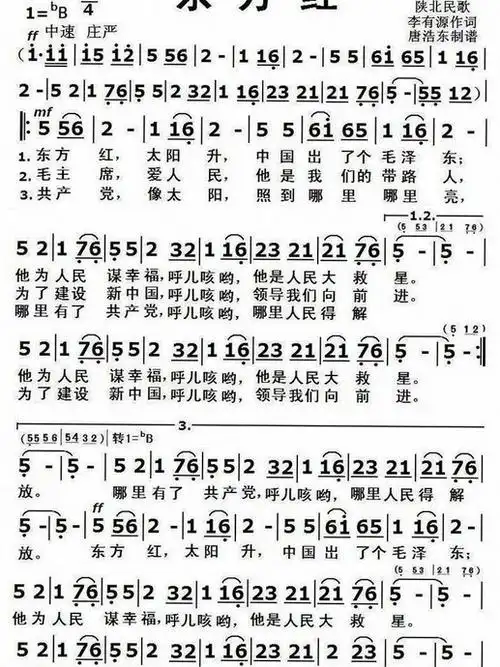 东方红
1=ᵇB 2/4
陕北民歌
李有源作词
唐浩东制谱
ff 中速 庄严
( i·i i | i5 i2 | 5 5 6 | 2 - | i i6 i | 65 | 2 5 2 | 1 16 |
2 - | 5 2 | 1 76 | 5 5 | 2 32 | 1 16 | 23 21 | 21 76 | 5 - | 55 12 )
mf
5 56 | 2 - | 1 16 | 2 - | 5 5 | 6i 65 | 1 16 | 2 - |
1. 东方 红， 太阳 升， 中国 出 了个 毛泽 东；
2. 毛主 席， 爱人 民， 他是 我 们的 带路 人，
3. 共产 党， 像太 阳， 照到 哪 里 哪里 亮，
1.2.
(5 53 | 21 76)
5 2 | 1 76 | 5 5 | 2 32 | 1 16 | 23 21 | 21 76 | 5 - | 5 -
他为 人民 谋幸福,呼儿咳哟，他是人民大 救 星。
为了 建设 新中国,呼儿咳哟，领导我们向 前 进。
哪里 有了 共产党,呼儿咳哟，哪里人民得 解
(5 12)
5 2 | 1 76 | 5 5 | 2 32 | 1 16 | 23 21 | 21 76 | 5 - | 5 -
他为 人民 谋幸福,呼儿咳哟，他是人民大 救 星。
为了 建设 新中国,呼儿咳哟，领导我们向 前 进。
3.
(5556 | 5432) 转1=ᵇB
5 - | 5 - | 5 2 | 1 76 | 5 5 | 2 32 | 1 16 | 23 21 | 21 76
放。 哪里 有了 共产党,呼儿咳哟，哪里人民得 解
ff
5 - | 5 - | 5 56 | 2 - | 1 16 | 2 - | 5 5 | 6i 65 | 1 16 | 2 -
放。 东方 红，太阳 升， 中国 出 了个 毛泽 东；
(5 53 | 21 76)
5 2 | 1 76 | 5 5 | 2 32 | 1 16 | 23 21 | 21 76 | 5 - | 5 -
他为 人民 谋幸福,呼儿咳哟，他是人民大 救 星。
5 2 | 1 76 | 5 5 | 2 32 | 1 16 | 23 21 | 2 76 | 5 - | 5 -